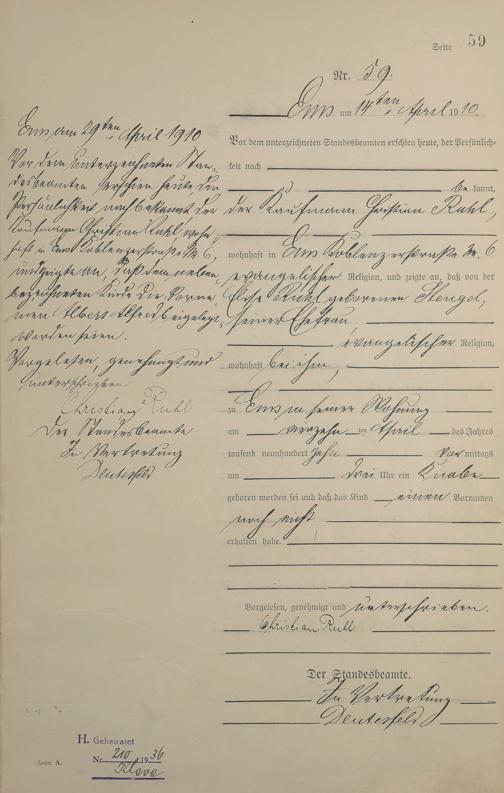 Seite 59
Nr. 59.
Ems am 14ten April 1910.
Vor dem unterzeichneten Standesbeamten erschien heute, der Persönlich-
keit nach
bekannt,
der Kaufmann Christian Ruhl,
wohnhaft in Ems Koblenzerstraße N. 6
evangelischer Religion, und zeigte an, daß von der
Elise Ruhl geborenen Stengel,
seiner Ehefrau,
evangelischer Religion,
wohnhaft bei ihm,
zu Ems in seiner Wohnung
am vierzehn ten April des Jahres
tausend neunhundert zehn Vormittags
um drei Uhr ein Knabe
geboren worden sei und daß das Kind einen Vornamen
noch nicht
erhalten habe.
Vorgelesen, genehmigt und unterschrieben.
Christian Ruhl
Der Standesbeamte.
In Vertretung
Deutesfeld
Ems am 29ten April 1910
Vor dem unterzeichneten Stan-
desbeamten erschien heute der
Persönlichkeit nach bekannt, der
Kaufmann Christian Ruhl wohn-
haft in Ems Koblenzerstraße N. 6,
und zeigte an, daß dem neben-
bezeichneten Kinde die Vorna-
men Albert Alfred beigelegt
worden seien.
Vorgelesen, genehmigt und
unterschrieben
Christian Ruhl
Der Standesbeamte
In Vertretung
Deutesfeld
H. Geheiratet
Nr. 210 1936
Kleve
A.